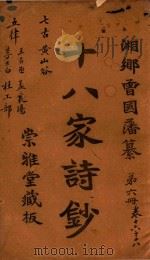 湘鄉曾國藩纂
第六冊
十八家詩鈔
崇雅堂藏板
七古 黃山谷
五律 王右丞 孟襄陽
李太白 杜工部